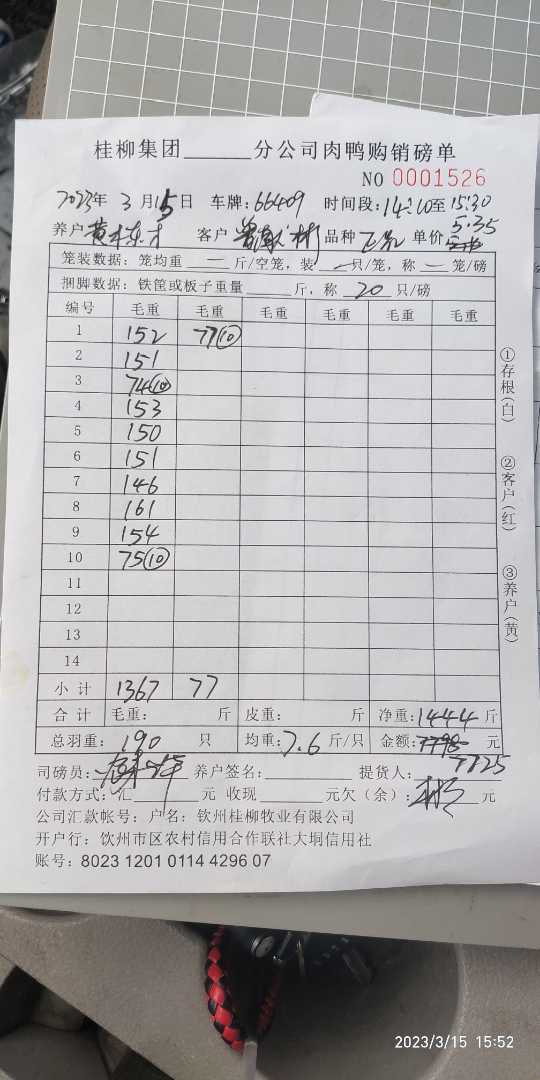 桂柳集团______分公司肉鸭购销磅单
NO 0001526
2023年 3 月15日 车牌:66409 时间段:14:10至15:30
养户 黄 客户 彬 品种 单价 5.35
笼装数据:笼均重 — 斤/空笼,装 — 只/笼,称 — 笼/磅
捆脚数据:铁筐或板子重量 ____ 斤,称 20 只/磅
编号 毛重 毛重 毛重 毛重 毛重 毛重
1 152 77⑩
2 151
3 74⑩
4 153
5 150
6 151
7 146
8 161
9 154
10 75⑩
11
12
13
14
小 计 1367 77
合 计 毛重: 斤 皮重: 斤 净重:1444 斤
总羽重: 190 只 均重:7.6 斤/只 金额:7798 元
7725
司磅员: 养户签名:________ 提货人:
付款方式:汇______元 收现______元欠(余):彬 元
公司汇款帐号:户名:钦州桂柳牧业有限公司
开户行:钦州市区农村信用合作联社大垌信用社
账号:8023 1201 0114 4296 07
①存根(白)
②客户(红)
③养户(黄)
2023/3/15 15:52